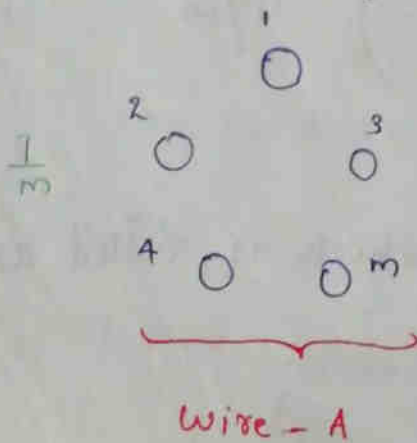 1
2
3
I/m
4
m
Wire - A